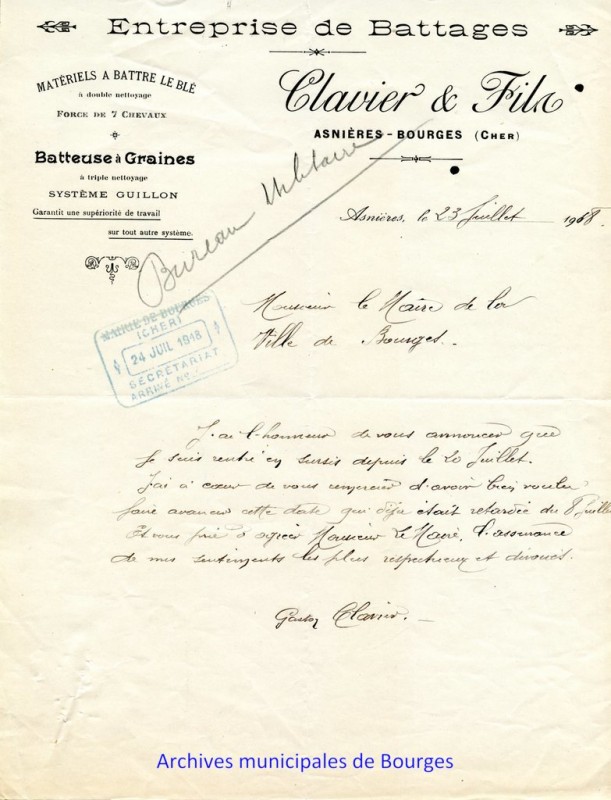 Entreprise de Battages
MATÉRIELS A BATTRE LE BLÉ
à double nettoyage
FORCE DE 7 CHEVAUX
Batteuse à Graines
à triple nettoyage
SYSTÈME GUILLON
Garantit une supériorité de travail
sur tout autre système.
Clavier & Fils
ASNIÈRES-BOURGES (CHER)
Bureau Militaire
Asnières, le 23 Juillet 1918.
MAIRIE DE BOURGES
(CHER)
24 JUIL 1918
SECRÉTARIAT
ARRIVÉ No
Monsieur le Maire de la
Ville de Bourges.
J'ai l'honneur de vous annoncer que
je suis rentré en sursis depuis le 20 Juillet.
J'ai à cœur de vous remercier d'avoir bien voulu
faire avancer cette date qui déjà était retardée du 8 Juillet
Et vous prie d'agréer Monsieur Le Maire, l'assurance
de mes sentiments les plus respectueux et dévoués.
Gaston Clavier.
Archives municipales de Bourges